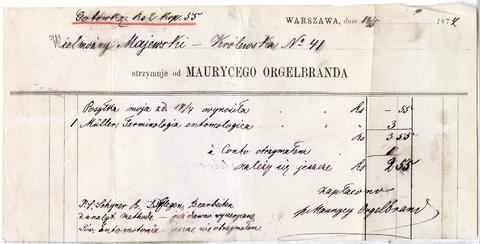 Gotówką Rs 2 kop. 55
WARSZAWA, dnia 18/5 1874
Wielmożny Majewski – Królewska No 41
otrzymuje od MAURYCEGO ORGELBRANDA
Posyłka moja z d. 14/4 wynosiła Rs – 55
1 Müller, Terminologia entomologica 3
Rs 3.55
à Conto otrzymałem 1
należy się jeszcze Rs 2 55
zapłacono
p. Maurycy Orgelbrand
Bearbeiten
d analyt methode dawno
entomotomia jeszcze nie otrzymałem